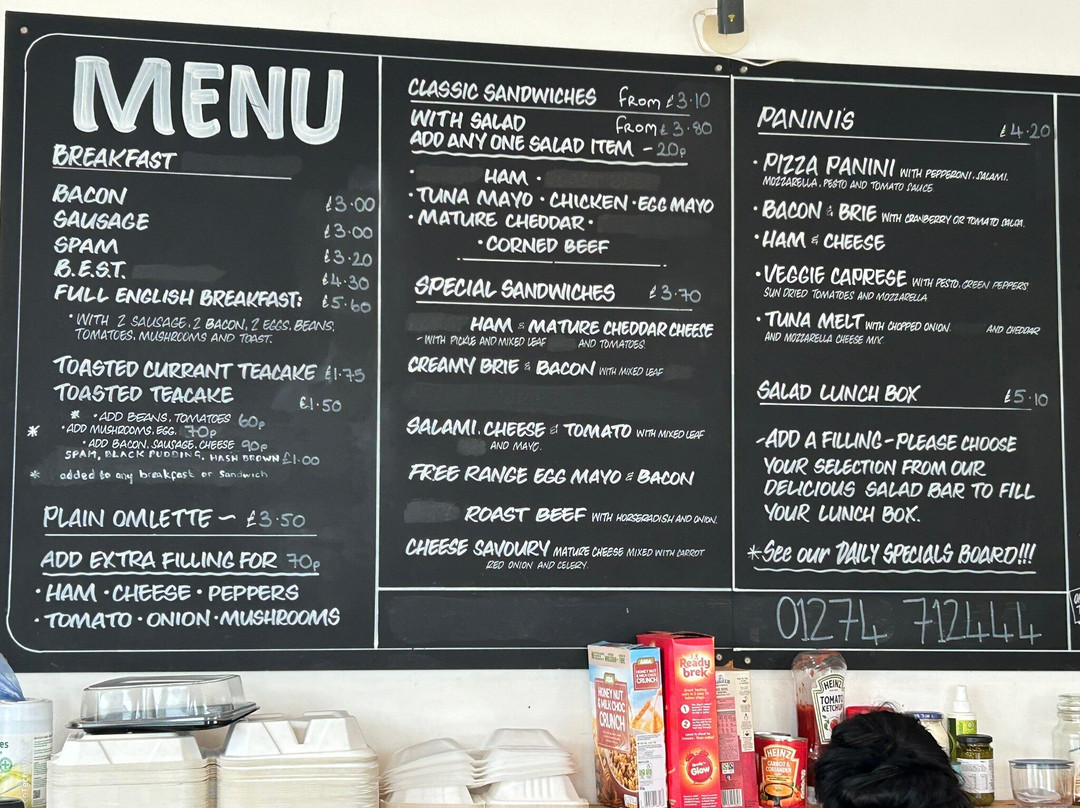 MENU
BREAKFAST
BACON £3.00
SAUSAGE £3.00
SPAM £3.20
B.E.S.T. £4.30
FULL ENGLISH BREAKFAST: £5.60
• WITH 2 SAUSAGE, 2 BACON, 2 EGGS, BEANS,
TOMATOES, MUSHROOMS AND TOAST.
TOASTED CURRANT TEACAKE £1.75
TOASTED TEACAKE £1.50
* • ADD BEANS, TOMATOES 60p
* • ADD MUSHROOMS, EGG, 70p
• ADD BACON, SAUSAGE, CHEESE 90p
SPAM, BLACK PUDDING, HASH BROWN £1.00
* added to any breakfast or Sandwich
PLAIN OMLETTE ~ £3.50
ADD EXTRA FILLING FOR 70p
• HAM • CHEESE • PEPPERS
• TOMATO • ONION • MUSHROOMS
CLASSIC SANDWICHES From £3.10
WITH SALAD From £3.80
ADD ANY ONE SALAD ITEM - 20p
• HAM •
• TUNA MAYO • CHICKEN • EGG MAYO
• MATURE CHEDDAR •
• CORNED BEEF
SPECIAL SANDWICHES £3.70
HAM & MATURE CHEDDAR CHEESE
- WITH PICKLE AND MIXED LEAF AND TOMATOES.
CREAMY BRIE & BACON WITH MIXED LEAF
SALAMI, CHEESE & TOMATO WITH MIXED LEAF
AND MAYO.
FREE RANGE EGG MAYO & BACON
ROAST BEEF WITH HORSERADISH AND ONION.
CHEESE SAVOURY MATURE CHEESE MIXED WITH CARROT
RED ONION AND CELERY.
PANINI'S £4.20
• PIZZA PANINI WITH PEPPERONI, SALAMI,
MOZZARELLA, PESTO AND TOMATO SAUCE
• BACON & BRIE WITH CRANBERRY OR TOMATO SALSA.
• HAM & CHEESE
• VEGGIE CAPRESE WITH PESTO, GREEN PEPPERS
SUN DRIED TOMATOES AND MOZZARELLA
• TUNA MELT WITH CHOPPED ONION, AND CHEDDAR
AND MOZZARELLA CHEESE MIX.
SALAD LUNCH BOX £5.10
~ADD A FILLING - PLEASE CHOOSE
YOUR SELECTION FROM OUR
DELICIOUS SALAD BAR TO FILL
YOUR LUNCH BOX.
*See our DAILY SPECIALS BOARD!!!
01274 712444
HONEY NUT
& MILK CHOC
CRUNCH
Ready
brek
Glow
HEINZ
TOMATO
KETCHUP
HEINZ
CARROT &
CORIANDER